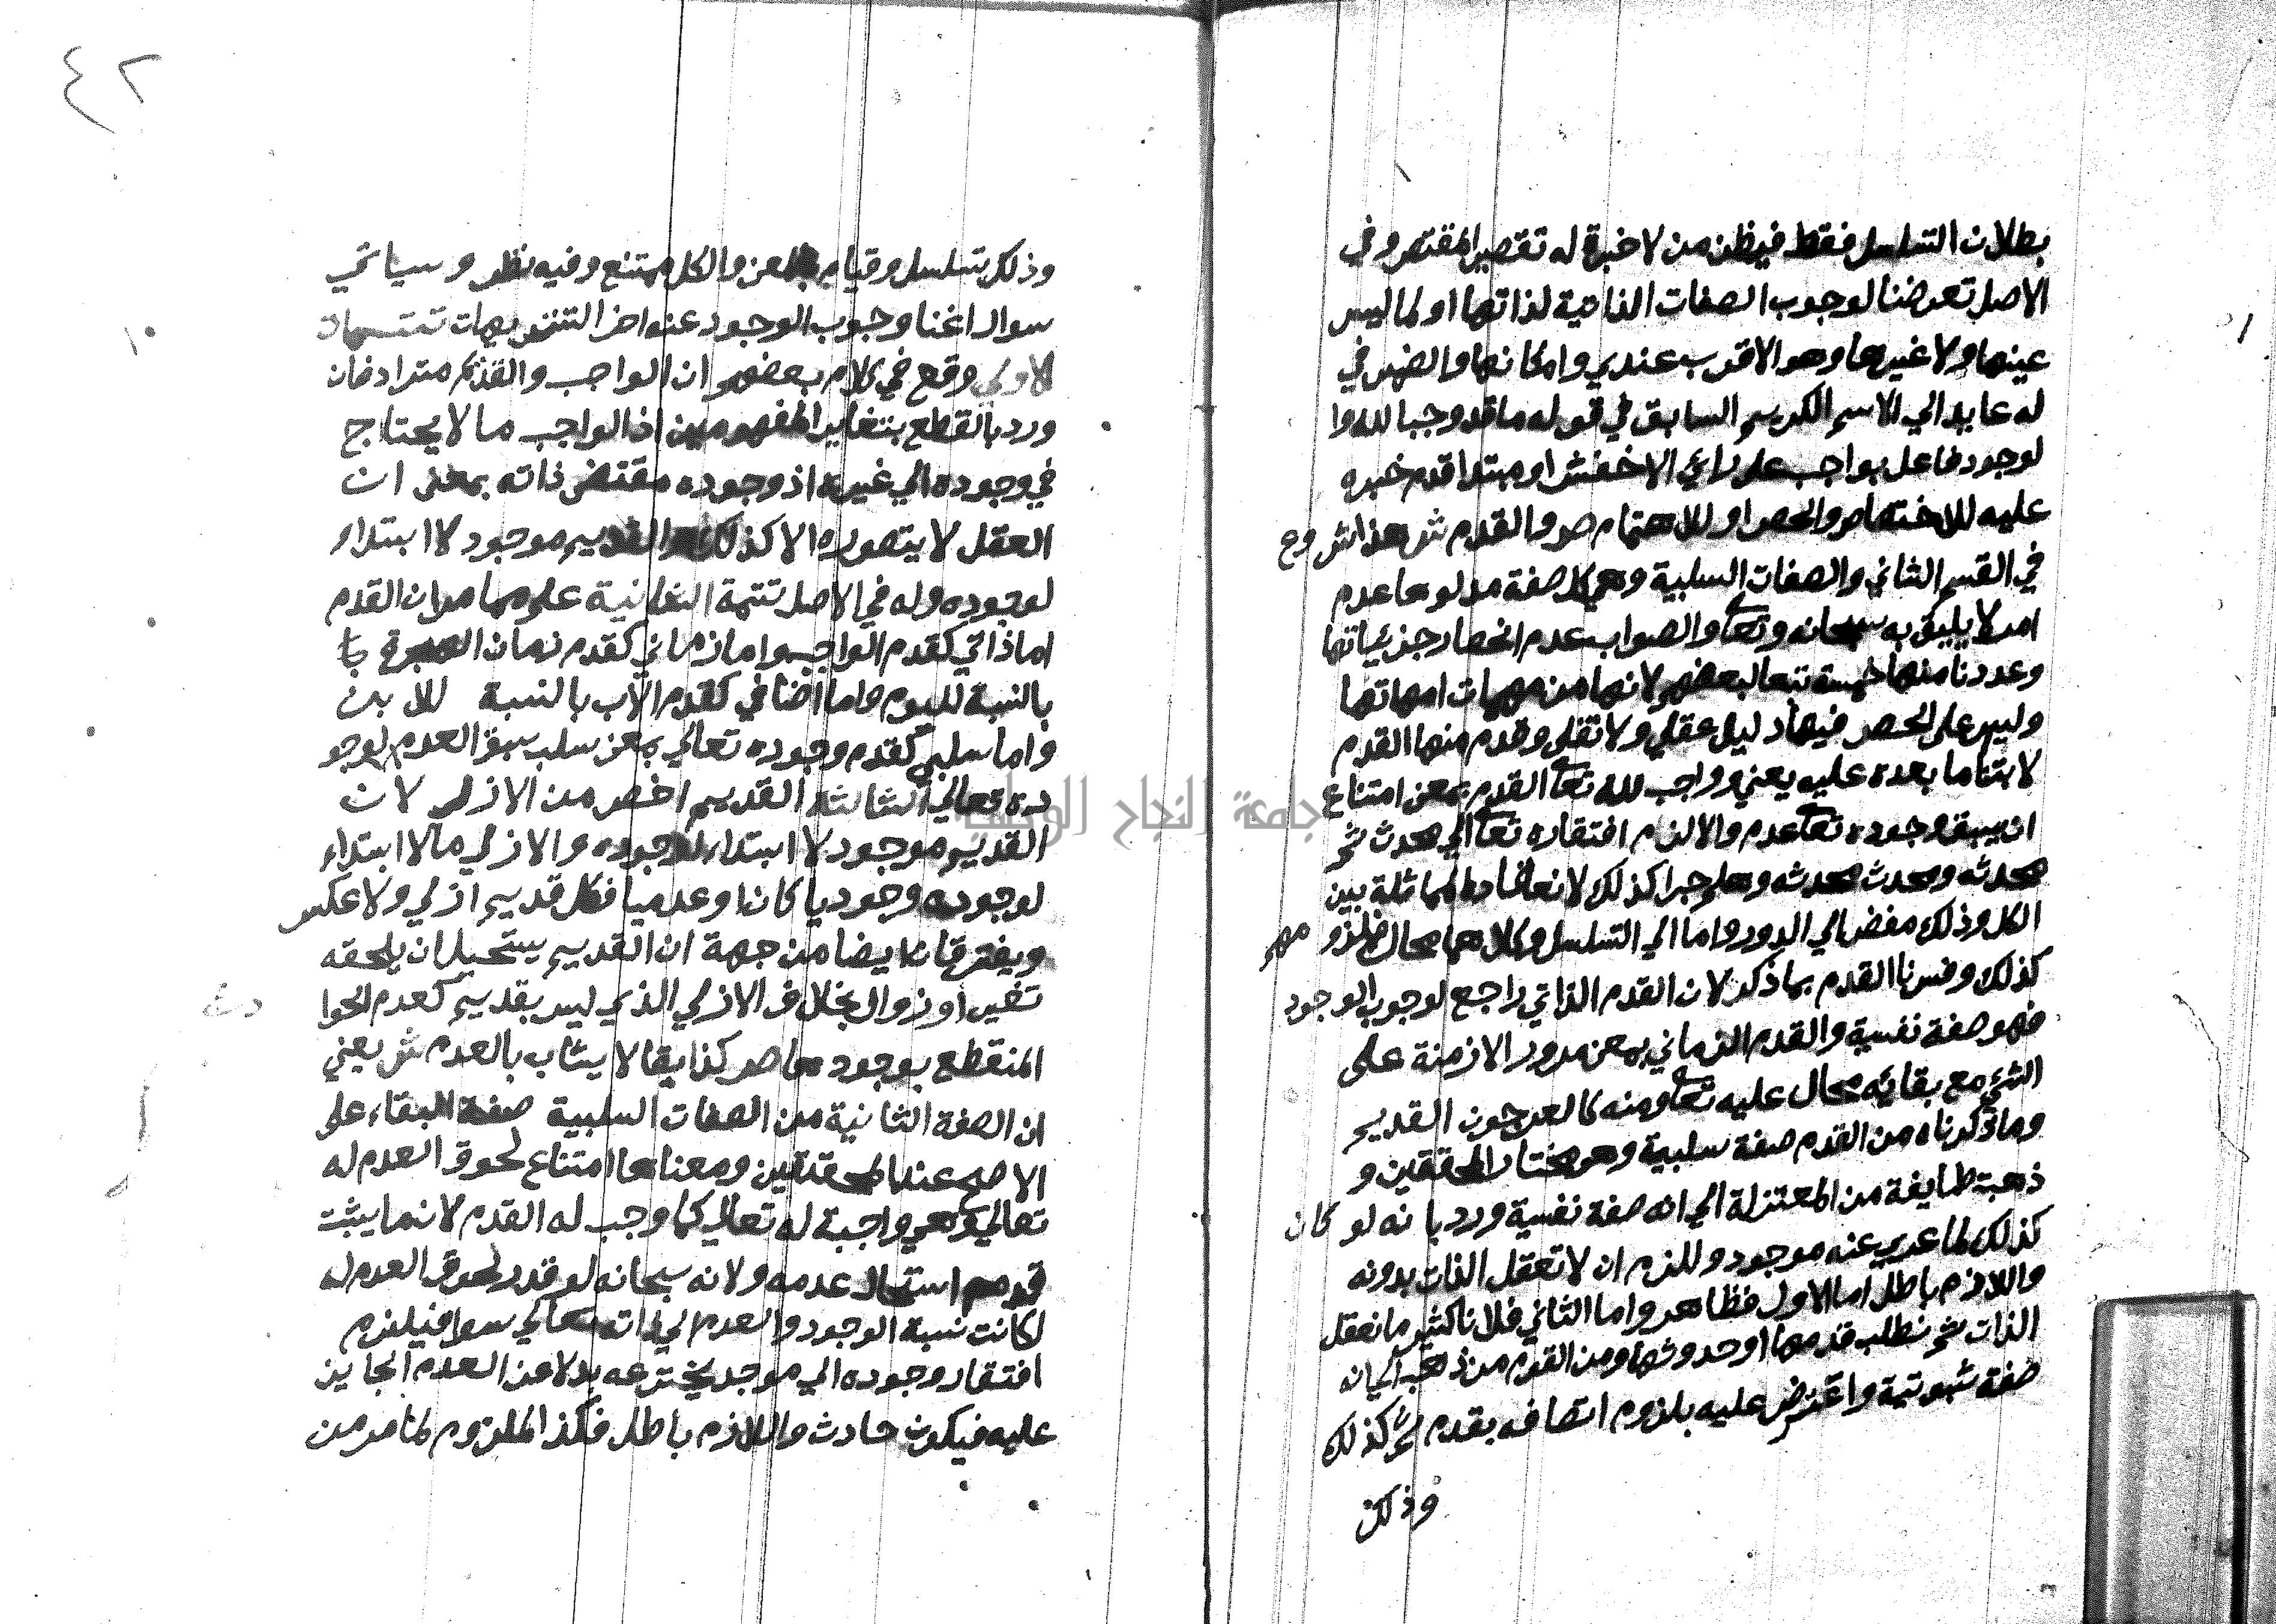 بطلان التسلسل فقط فيظن من لا خبرة له تقصير المقتصر وفي
الاصل تعرضنا لوجوب الصفات الذاتية لذاتها او لما ليس
عينها ولا غيرها وهو الاقرب عندي وامكانها والضمير في
له عايد الي الاسم الكريم السابق في قوله ما قد وجبا لله وا
لوجود فاعل بواجب على راي الاخفش او مبتدا قدم خبره
عليه للاختصاص والحصر او للاهتمام ص والقدم ش هذا شروع
في القسم الثاني والصفات السلبية وهي كل صفة مدلولها عدم
امر لا يليق به سبحانه وتعا والصواب عدم انحصار جزيياتها
وعددنا منها خمسة تبعا لبعضهم لانها من مهمات امهاتها
وليس على الحصر فيها دليل عقلي ولا نقلي وقدم منها القدم
لابتنا ما بعده عليه يعني وواجب لله تعا القدم بمعنى امتناع
ان يسبق وجوده تعا عدم والا لزم افتقاره تعا الي محدث ثم
محدثه ومحدث محدثه وهلم جرا كذلك لانعقاد المماثلة بين
الكل وذلك مفض الي الدور واما الي التسلسل وكلاهما محال فملزومهم
كذلك وفسرنا القدم بما ذكر لان القدم الذاتي راجع لوجوب الوجود
فهو صفة نفسية والقدم الزماني بمعنى مرور الازمنة على
الشيء مع بقايه محال عليه تعا ومنه كالعرجون القديم
وما ذكرناه من القدم صفة سلبية وهو مختار المحققين و
ذهبت طايفة من المعتزلة الي انه صفة نفسية ورد بانه لو كان
كذلك لما عري عنه موجود وللزم ان لا تعقل الذات بدونه
واللازم باطل اما الاول فظاهر واما الثاني فلانا كثير ما نعقل
الذات ثم نطلب قدمها او حدوثها ومن القدم من ذهب الي انه
صفة ثبوتية واعترض عليه بلزوم اتصافه بقدم ثم كذلك
وذلك
٤٢
وذلك تسلسل وقيام بالمعنى والكل ممتنع وفيه نظر وسياتي
سوال اغنا وجوب الوجود عنه اخر التنزيهات تتسمات
الاولي وقع في كلام بعضهم ان الواجب والقديم مترادفان
ورد بالقطع بتغاير المفهومين اذ الواجب ما لا يحتاج
في وجوده الي غيره اذ وجوده مقتضى ذاته بمعنى ان
العقل لا يتصوره الا كذلك والقديم موجود لا ابتداء
لوجوده وله في الاصل تتمة الثانية علم مما مر ان القدم
اما ذاتي كقدم الواجب واما زماني كقدم زمان الهجرة با
بالنسبة لليوم واما اضافي كقدم الاب بالنسبة للابن
واما سلبي كقدم وجوده تعالي بمعنى سلب سبق العدم لوجو
ده تعالي الثالثة القديم اخص من الازلي لان
القديم موجود لا ابتداء لوجوده والازلي ما لا ابتداء
لوجوده وجوديا كان او عدميا فكل قديم ازلي ولا عكس
ويفترقان ايضا من جهة ان القديم يستحيل ان يلحقه
تغير او زوال بخلاف الازلي الذي ليس بقديم كعدم الحوادث
المنقطع بوجودها ص كذا بقا لا يشاب بالعدم ش يعني
ان الصفة الثانية من الصفات السلبية صفة البقاء على
الاصح عند المحققين ومعناها امتناع لحوق العدم له
تعالي وهي واجبة له تعالي كما وجب له القدم لان ما يثبت
قدمه استحال عدمه ولانه سبحانه لو قدر لحوق العدم له
لكانت نسبة الوجود والعدم الي ذاته تعالي سوا فيلزم
افتقار وجوده الي موجد يخترعه بدلا عن العدم الجايز
عليه فيكون حادث واللازم باطل فكذا الملزوم لما مر من